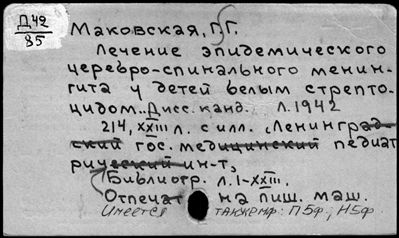 Д42
85
Маковская, Г.Г.
Лечение эпидемического
церебро-спинального менин-
гита у детей белым стрепто-
цидом.. Дисс. канд.. Л. 1942
214, XXIII л. с илл. (Ленинград-
ский гос. медицинский педиат
рический ин-т,
Библиогр. л. I-XXIII.
Отпечат на пиш. маш.
Имеется также мф: П5ф; Н5ф.